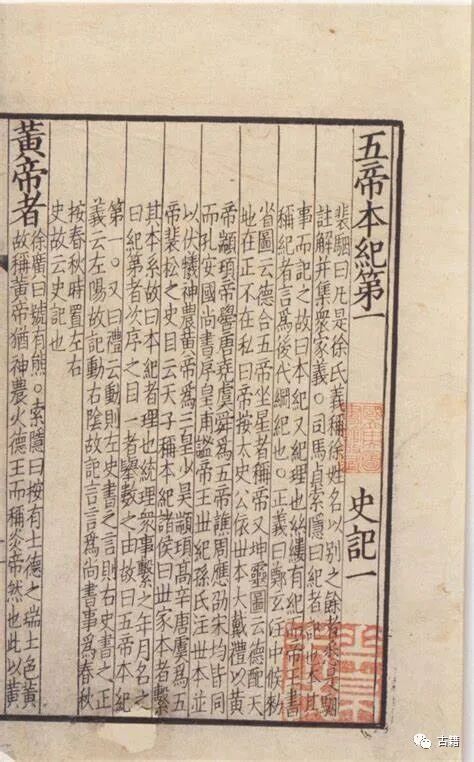 五帝本紀第一 史記一
裴駰曰凡是徐氏義稱徐姓名以別之餘者悉是駰
註解并集衆家義。司馬貞索隱曰紀者記也本其
事而記之故曰本紀又紀理也絲縷有紀而帝王書
稱紀者言爲後代綱紀也。正義曰鄭玄注中候勑
省圖云德合五帝坐星者稱帝又坤靈圖云德配天
地在正不在私曰帝按太史公依世本大戴禮以黃
帝顓頊帝嚳唐堯虞舜爲五帝譙周應劭宋均皆同
而孔安國尚書序皇甫謐帝王世紀孫氏注世本並
以伏犧神農黃帝爲三皇少昊顓頊高辛唐虞爲五
帝裴松之史目云天子稱本紀諸侯曰世家本者繫
其本系故曰本紀者理也統理衆事繫之年月名之
曰紀第者次序之目一者舉數之由故曰五帝本紀
第一。又曰禮云動則左史書之言則右史書之正
義云左陽故記動右陰故記言言爲尚書事爲春秋
按春秋時置左右
史故云史記也
黃帝者
徐廣曰號有熊。索隱曰按有土德之瑞土色黃
故稱黃帝猶神農火德王而稱炎帝然也此以黃
古籍